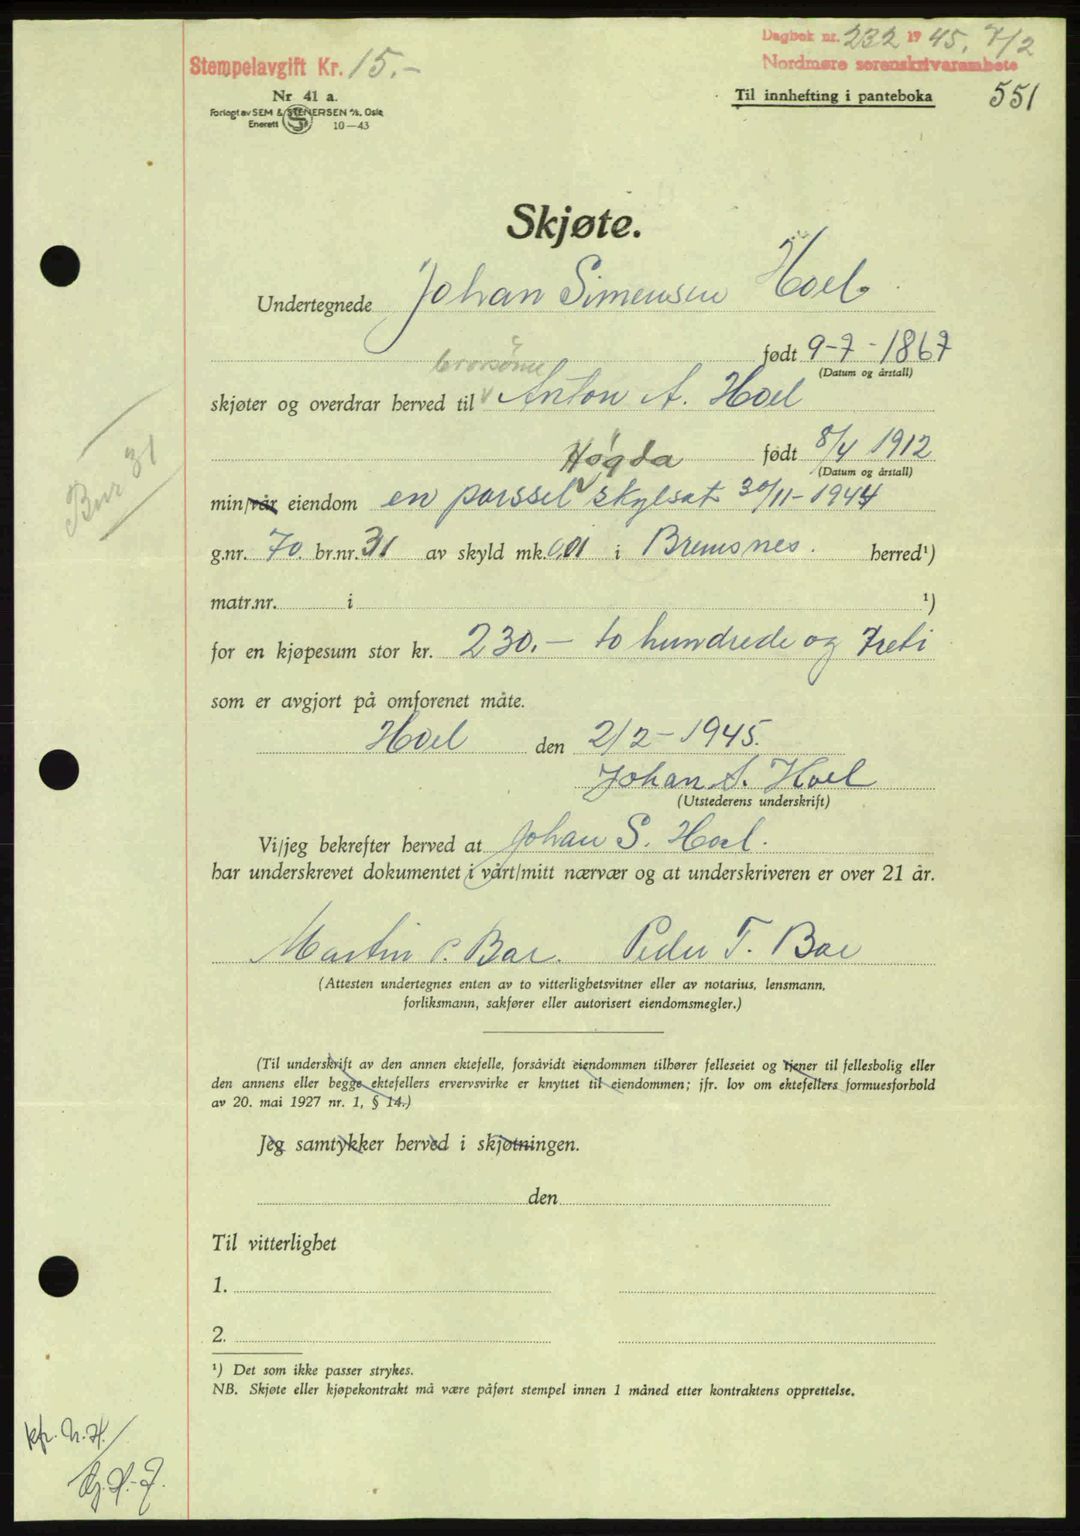 Stempelavgift Kr. 15.-
Dagbok nr. 232 1945. 7/2
Nordmøre sorenskrivarambete
Nr 41 a.
Forlagt av SEM & STENERSEN A/S. Oslo
Enerett 10-43
Til innhefting i panteboka 551
Skjøte.
Undertegnede Johan Simensen Hoel
født 9-7-1867
(Datum og årstall)
brorsönn
skjøter og overdrar herved til Anton A. Hoel
født 8/4 1912
(Datum og årstall)
Høgda
min/vår eiendom en parssel skylsat 30/11-1944
g.nr. 70. br.nr. 31 av skyld mk. 0,01 i Bremsnes. herred¹)
Bnr 31
matr.nr. i ¹)
for en kjøpesum stor kr. 230.- to hundrede og treti
som er avgjort på omforenet måte.
Hoel den 2/2-1945.
Johan S. Hoel
(Utstederens underskrift)
Vi/jeg bekrefter herved at Johan S. Hoel.
har underskrevet dokumentet i vårt/mitt nærvær og at underskriveren er over 21 år.
Martin P. Bae. Peder T. Bae
(Attesten undertegnes enten av to vitterlighetsvitner eller av notarius, lensmann,
forliksmann, sakfører eller autorisert eiendomsmegler.)
(Til underskrift av den annen ektefelle, forsåvidt eiendommen tilhører felleseiet og tjener til fellesbolig eller
den annens eller begge ektefellers ervervsvirke er knyttet til eiendommen; jfr. lov om ektefellers formuesforhold
av 20. mai 1927 nr. 1, § 14.)
Jeg samtykker herved i skjøtningen.
den
Til vitterlighet
1.
2.
¹) Det som ikke passer strykes.
NB. Skjøte eller kjøpekontrakt må være påført stempel innen 1 måned etter kontraktens opprettelse.
kfr. N.H.